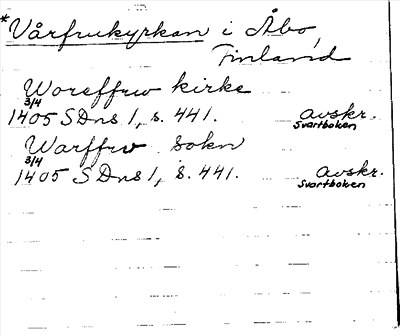 *Vårfrukyrkan i Åbo,
Finland
Woreffrw kirke
3/4
1405 SDns 1, s. 441. avskr.
Svartboken
Warffrw sokn
3/4
1405 SDns 1, s. 441. avskr.
Svartboken